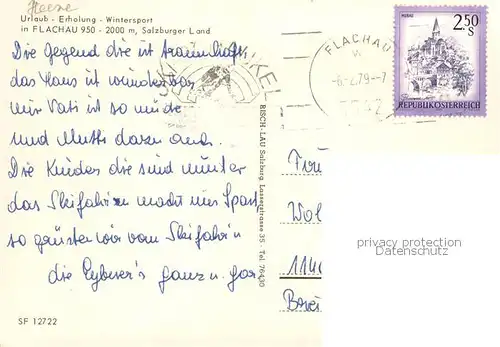 Urlaub - Erholung - Wintersport
in FLACHAU 950 - 2000 m, Salzburger Land
Die Gegend die ist traumhaft,
das Haus ist wunderbar
nur Vati ist so müde
und Mutti dazu auch.
Die Kinder die sind munter
das Skifahr'n macht uns Spaß
so grüßen wir vom Skifahr'n
die Eyberer's ganz u. gar.
SF 12722
RISCH-LAU Salzburg, Lasserstrasse 35 - Tel. 76430
FLACHAU
-6.-2.79--7
5542
MURAU
2.50
S
REPUBLIK ÖSTERREICH
Wol
1140
privacy protection
Datenschutz